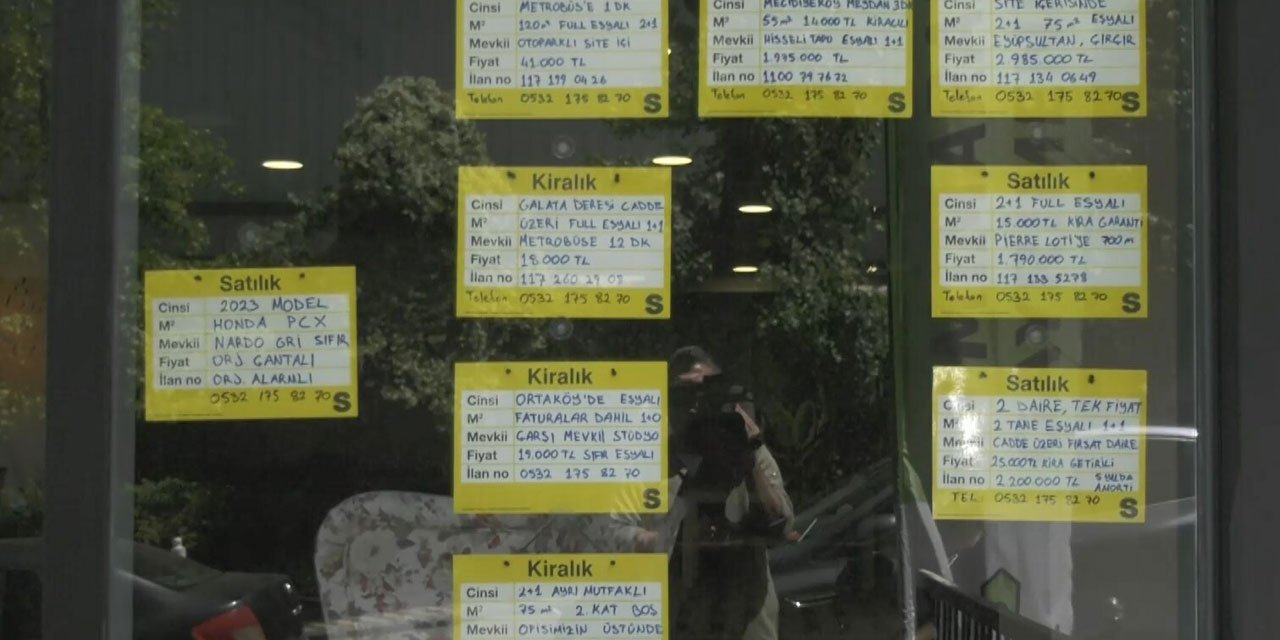 Cinsi METROBÜS'E 1 DK
M² 120m² FULL EŞYALI 2+1
Mevkii OTOPARKLI SİTE İÇİ
Fiyat 41.000 TL
İlan no 117 199 04 26
Telefon 0532 175 82 70 S
Cinsi MECİDİYEKÖY MEYDAN 3DK
M² 55m² 14000 TL KİRACILI
Mevkii HİSSELİ TAPU EŞYALI 1+1
Fiyat 1.975.000 TL
İlan no 1100 79 76 72
Telefon 0532 175 82 70 S
Cinsi SİTE İÇERİSİNDE
M² 2+1 75m² EŞYALI
Mevkii EYÜPSULTAN, ÇIRÇIR
Fiyat 2 985.000 TL
İlan no 117 134 06 49
Telefon 0532 175 82 70 S
Kiralık
Cinsi GALATA DERESİ CADDE
M² ÜZERİ FULL EŞYALI 1+1
Mevkii METROBÜSE 12 DK
Fiyat 18.000 TL
İlan no 117 260 29 08
Telefon 0532 175 82 70 S
Satılık
Cinsi 2+1 FULL EŞYALI
M² 15.000 TL KİRA GARANTİ
Mevkii PİERRE LOTİ'YE 700 m
Fiyat 1.790 000 TL
İlan no 117 133 5278
Telefon 0532 175 82 70 S
Satılık
Cinsi 2023 MODEL
M² HONDA PCX
Mevkii NARDO GRİ SIFIR
Fiyat ORJ ÇANTALI
İlan no ORJ. ALARMLI
0532 175 82 70 S
Kiralık
Cinsi ORTAKÖY'DE EŞYALI
M² FATURALAR DAHİL 1+0
Mevkii ÇARŞI MEVKİİ STÜDYO
Fiyat 19.000 TL SIFIR EŞYALI
İlan no 0532 175 82 70
S
Satılık
Cinsi 2 DAİRE, TEK FİYAT
M² 2 TANE EŞYALI 1+1
Mevkii CADDE ÜZERİ FIRSAT DAİRE
Fiyat 25.000TL KİRA GETİRİLİ
İlan no 2 200.000 TL 5 YILDA AMORTİ
TEL 0532 175 82 70 S
Kiralık
Cinsi 2+1 AYRI MUTFAKLI
M² 75 m² 2. KAT BOŞ
Mevkii OFİSİMİZİN ÜSTÜNDE